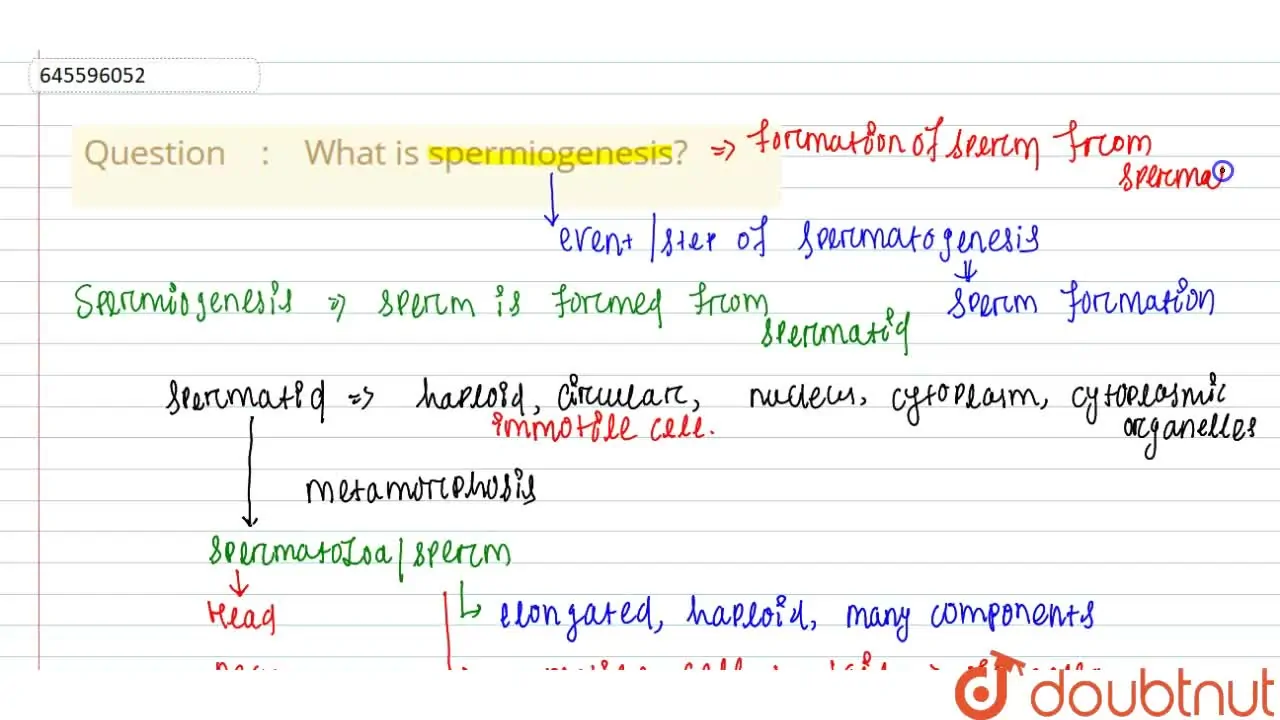 645596052
Question : What is spermiogenesis? ⇒ formation of sperm from
sperma
event / step of spermatogenesis
Spermiogenesis ⇒ sperm is formed from
spermatid
sperm formation
spermatid ⇒ haploid, circular, nucleus, cytoplasm, cytoplasmic
immotile cell. organelles
metamorphosis
spermatozoa / sperm
Head
elongated, haploid, many components
doubtnut